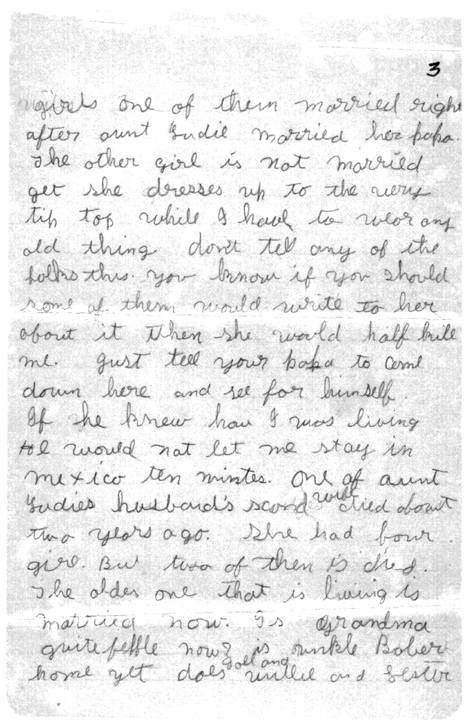 3
girls one of them married righ
after aunt Judie married her papa.
The other girl is not married
yet she dresses up to the very
tip top while I have to wear any
old thing don't tell any of the
folks this. you know if you should
some of them would write to her
about it then she would half kill
me. Just tell your papa to come
down here and see for himself.
If he knew how I was living
He would not let me stay in
mexico ten mintes. One of aunt
Judies husband's scond wife died about
two years ago. She had four
girl. But two of then is died.
The older one that is living is
married now. Is Grandma
quite feffle now? is unkle
home yet does and willie and Lester